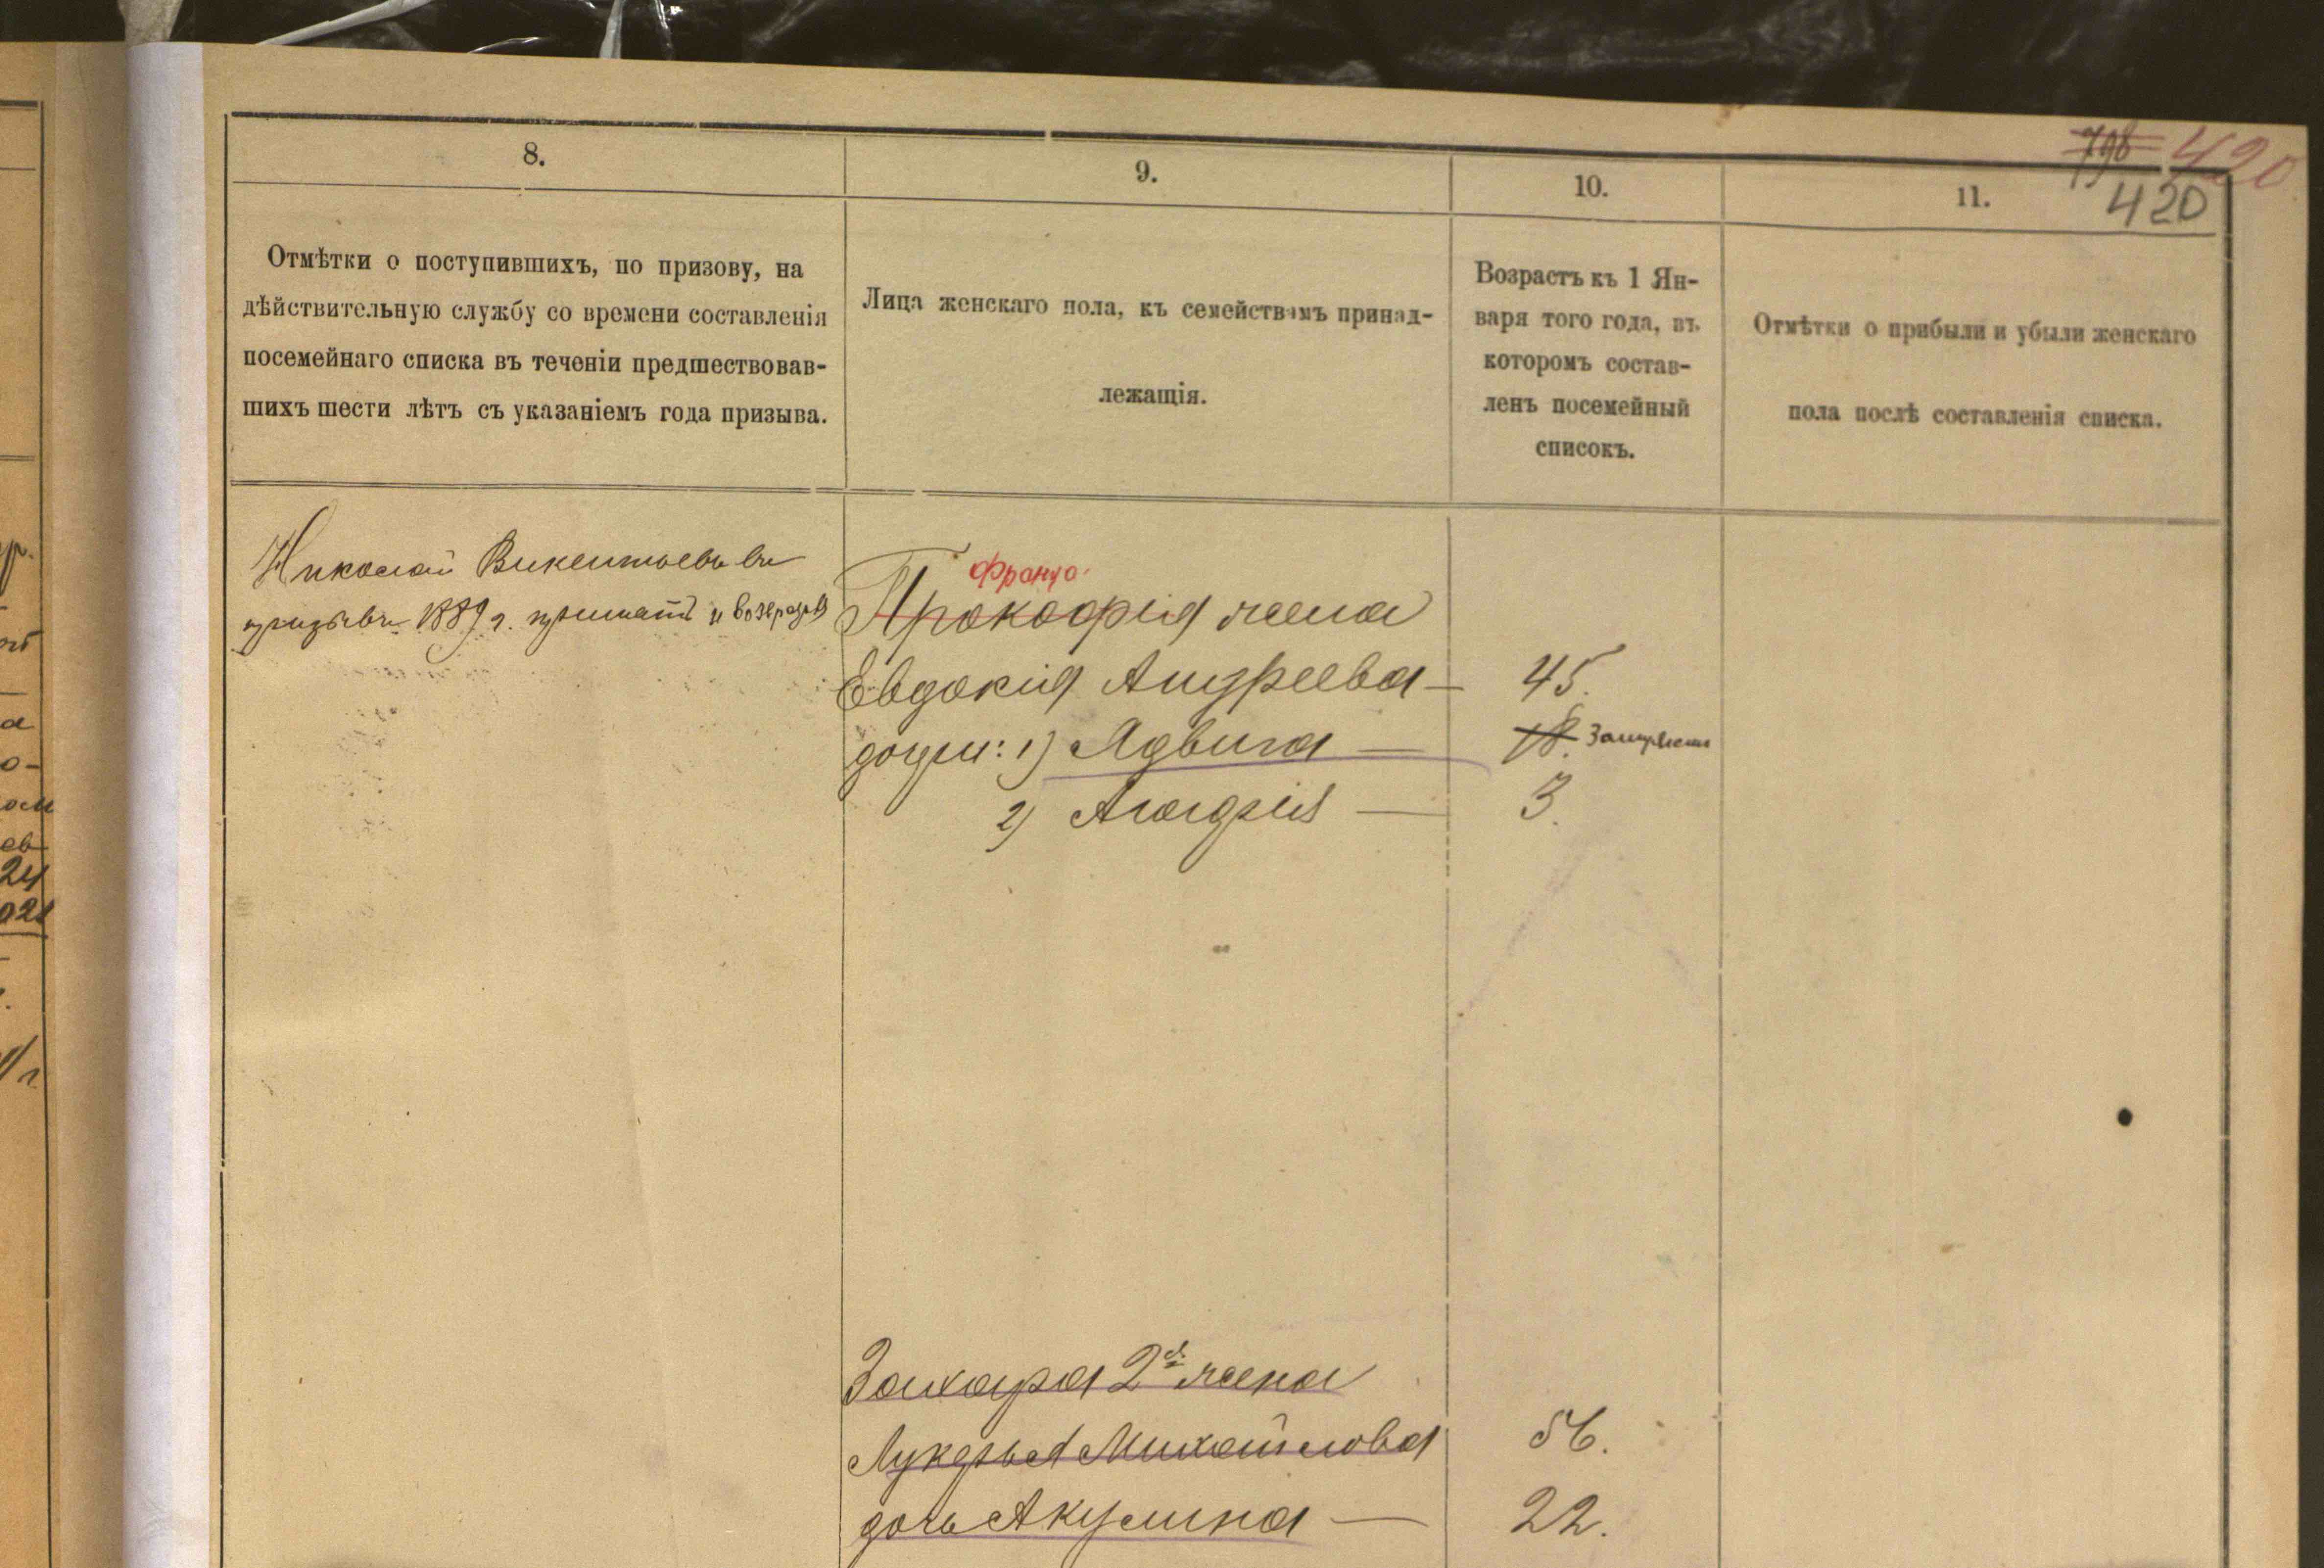 798 420
8. 9. 10. 11. 420
Отмѣтки о поступившихъ, по призову, на
дѣйствительную службу со времени составленія
посемейнаго списка въ теченіи предшествовав-
шихъ шести лѣтъ съ указаніемъ года призыва.
Лица женскаго пола, къ семействамъ принад-
лежащія.
Возрастъ къ 1 Ян-
варя того года, въ
которомъ состав-
ленъ посемейный
списокъ.
Отмѣтки о прибыли и убыли женскаго
пола послѣ составленія списка.
Николай Викентьевъ въ
призывъ 1889 г. принятъ и
Франца
Прокофія жена
Евдокія Андреева — 45.
дочери: 1) Ядвига — 18. Замужемъ
2) — 3.
Захара 2я жена
Лукерья Михайлова 56.
дочь Акулина — 22.
24